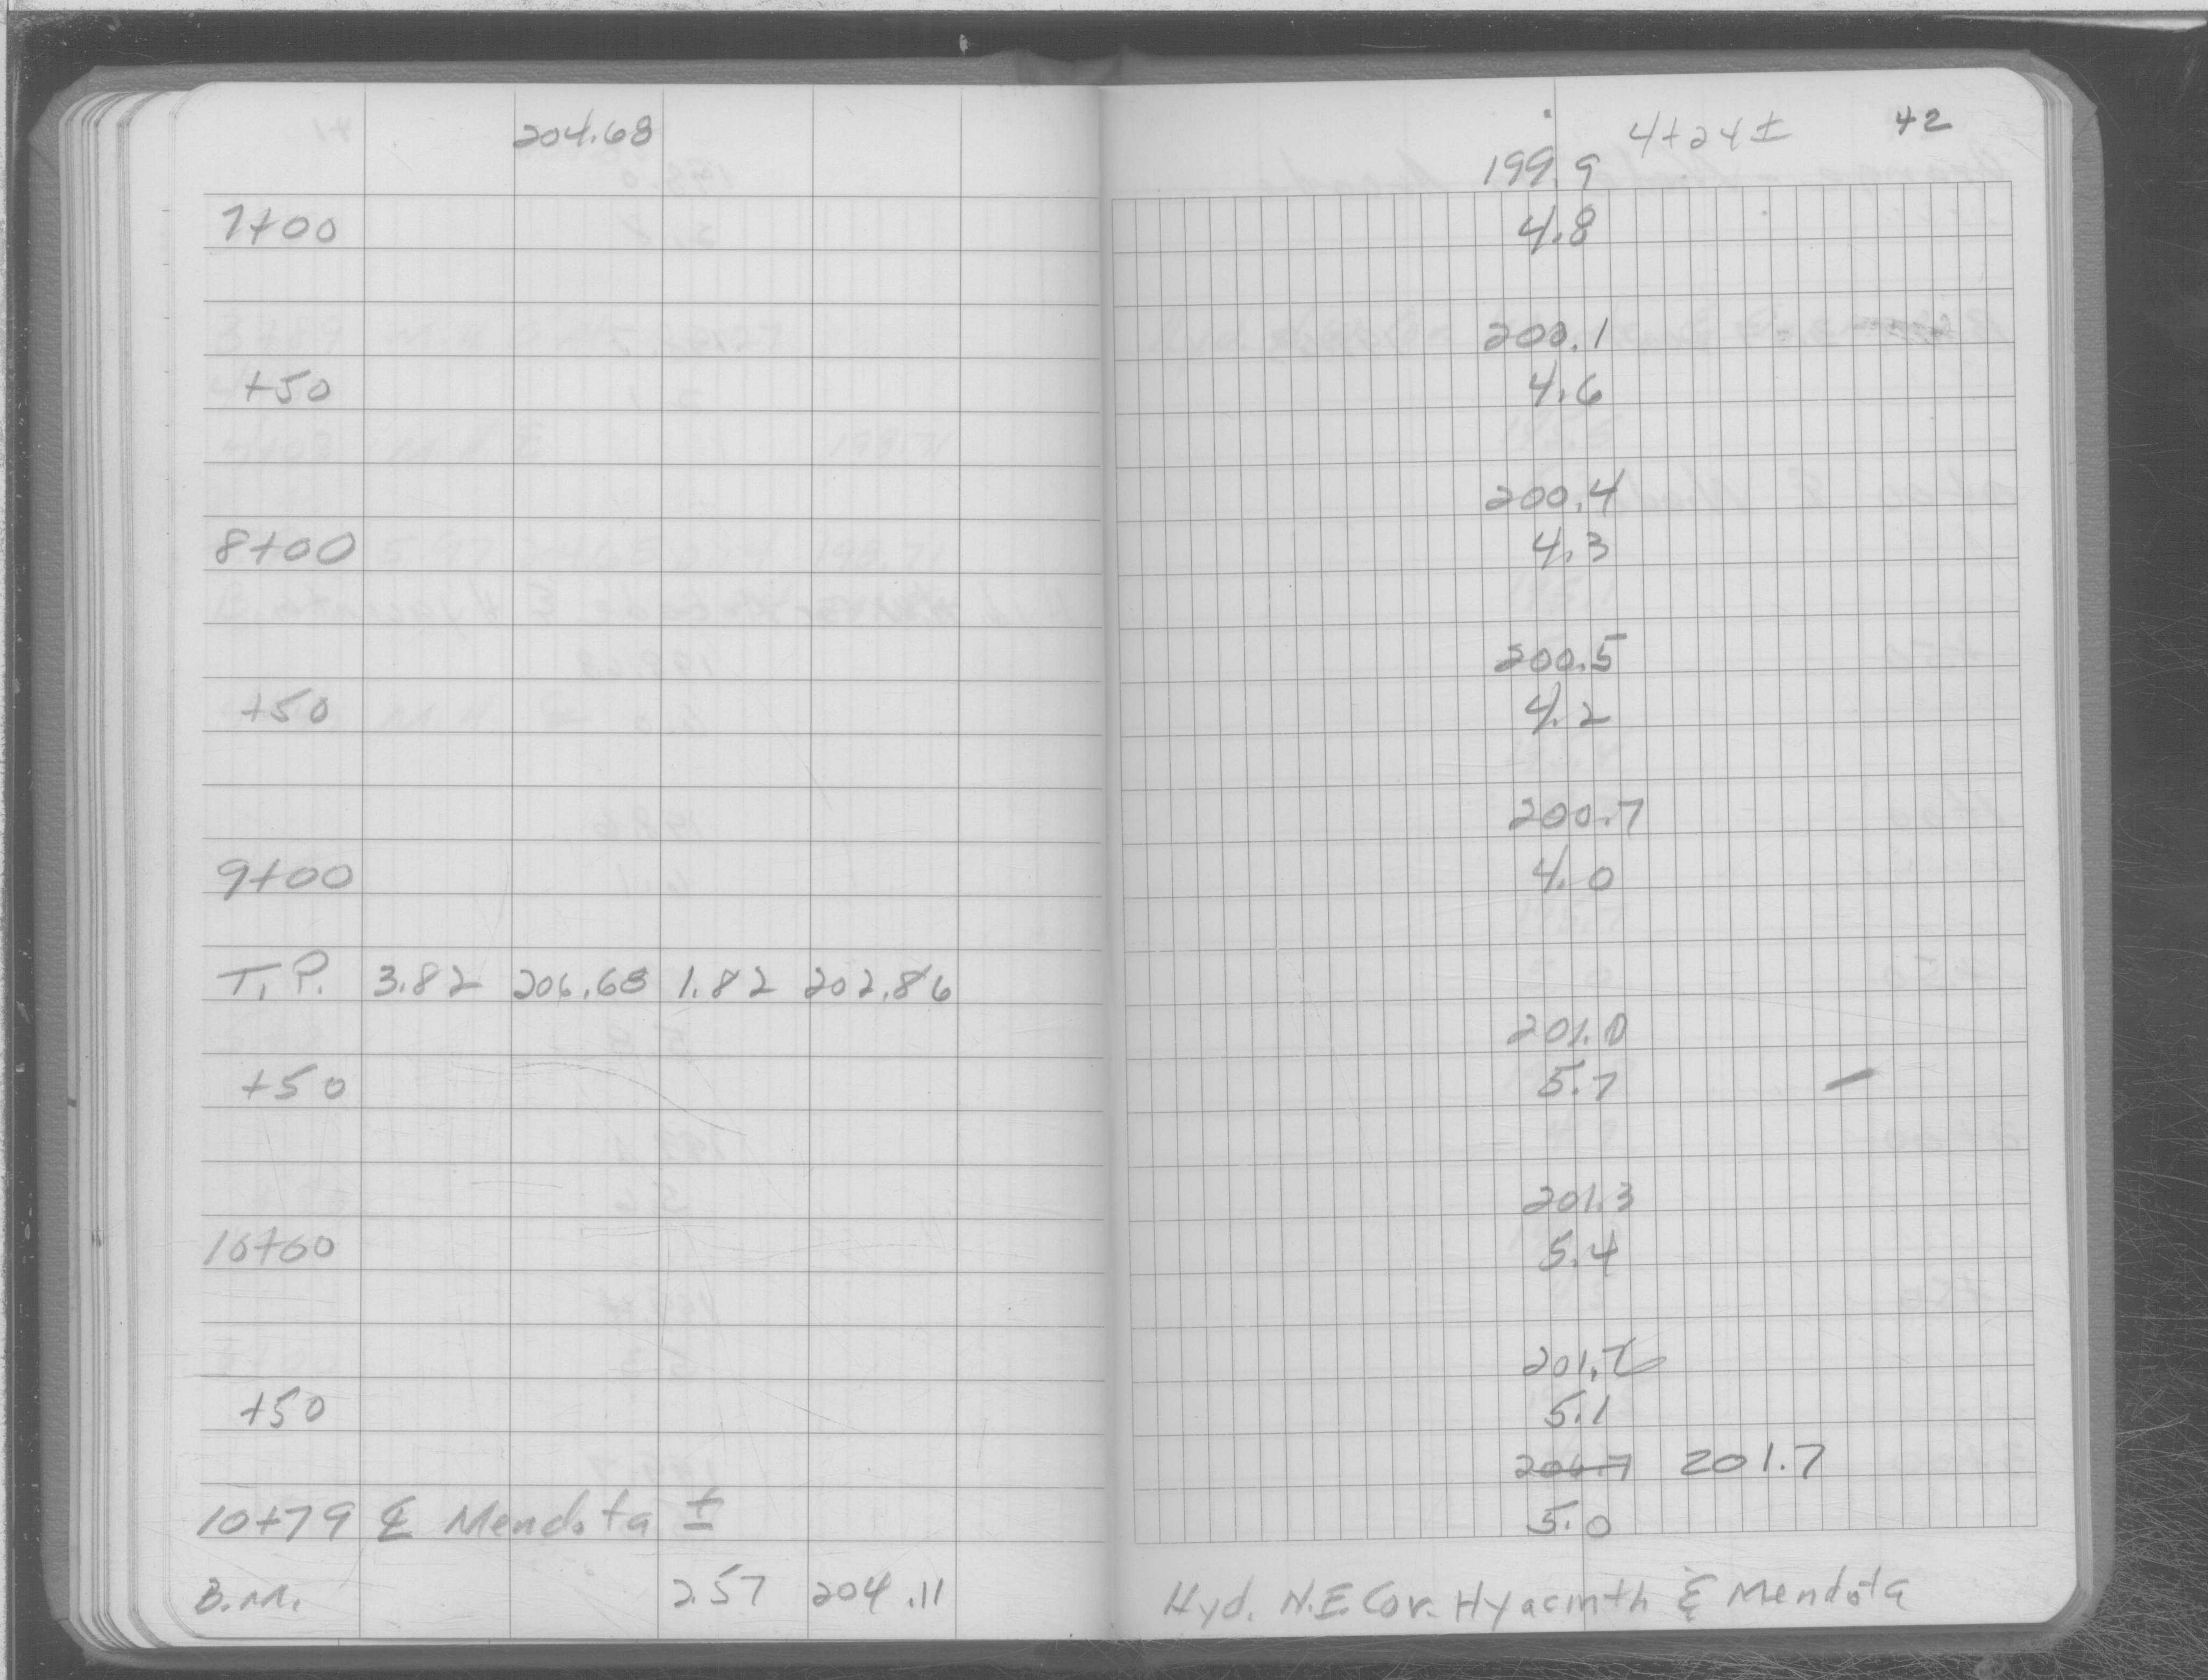 204.68
4+24± 42
199.9
7+00 4.8
200.1
+50 4.6
200.4
8+00 4.3
200.5
+50 4.2
200.7
9+00 4.0
T.P. 3.82 206.68 1.82 202.86
201.0
+50 5.7
201.3
10+00 5.4
+50 5.1
201.7
10+79 ℄ Mendota ± 5.0
B.M. 2.57 204.11 Hyd. N.E Cor. Hyacinth & Mendota